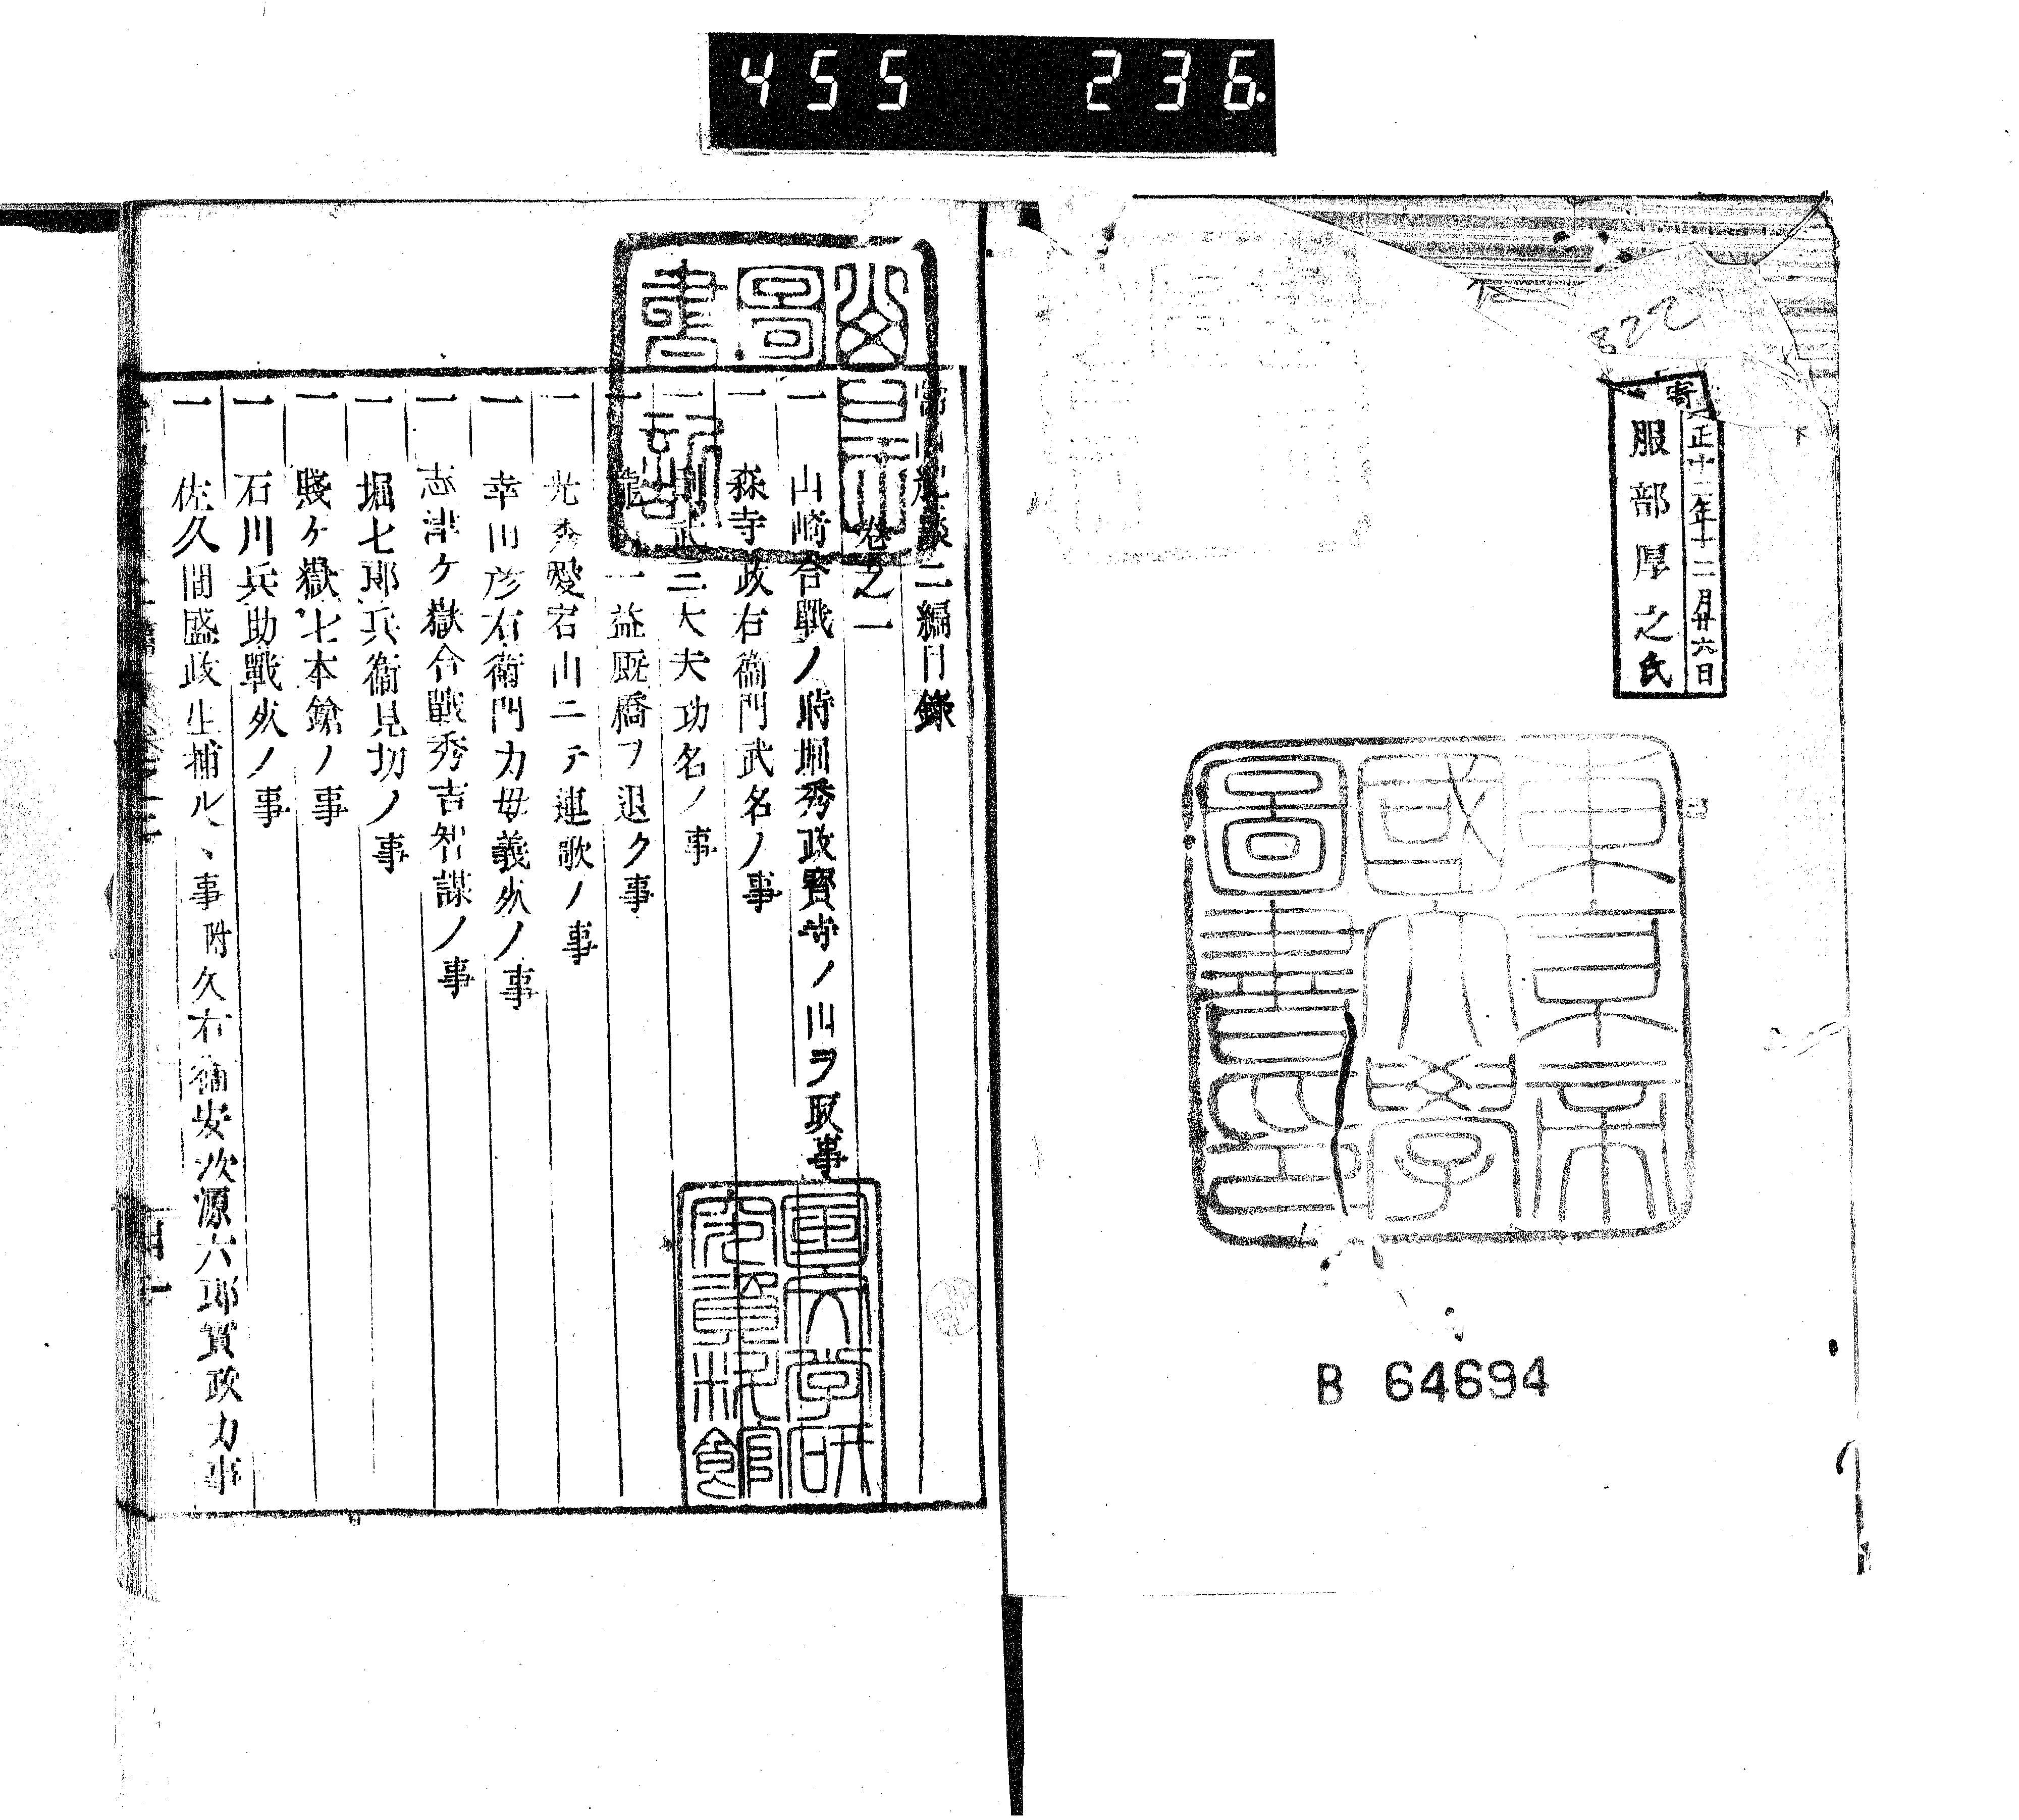 455 236
822
寄
正十二年十二月廿六日
服部厚之氏
東京帝
國大學
圖書印
B 64694
二編目錄
卷之一
一 山崎合戰ノ時堀秀政寳寺ノ山ヲ取事
一 森寺政右衞門武名ノ事
一 武三大夫功名ノ事
一 一益厩橋ヲ退ク事
一 光秀愛宕山ニテ連歌ノ事
一 幸田彦右衞門カ母義死ノ事
一 志津ケ嶽合戰秀吉智謀ノ事
一 堀七郎兵衞見切ノ事
一 賤ケ嶽七本鎗ノ事
一 石川兵助戰死ノ事
一 佐久間盛政生捕ルヽ事附久右衞安次源六郎實政カ事
圖
書
記
文學研
究資料館